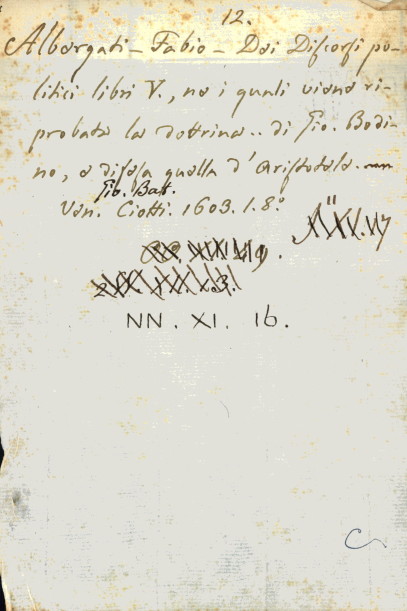 12.
Albergati - Fabio - Dei Discorsi po-
litici libri V., ne i quali viene ri-
probata la dottrina .. di Gio. Bodi-
no, e difesa quella d'Aristotele.
Gio. Batt.
Ven. Ciotti. 1603. 1. 8.º
NN. XI. 16.